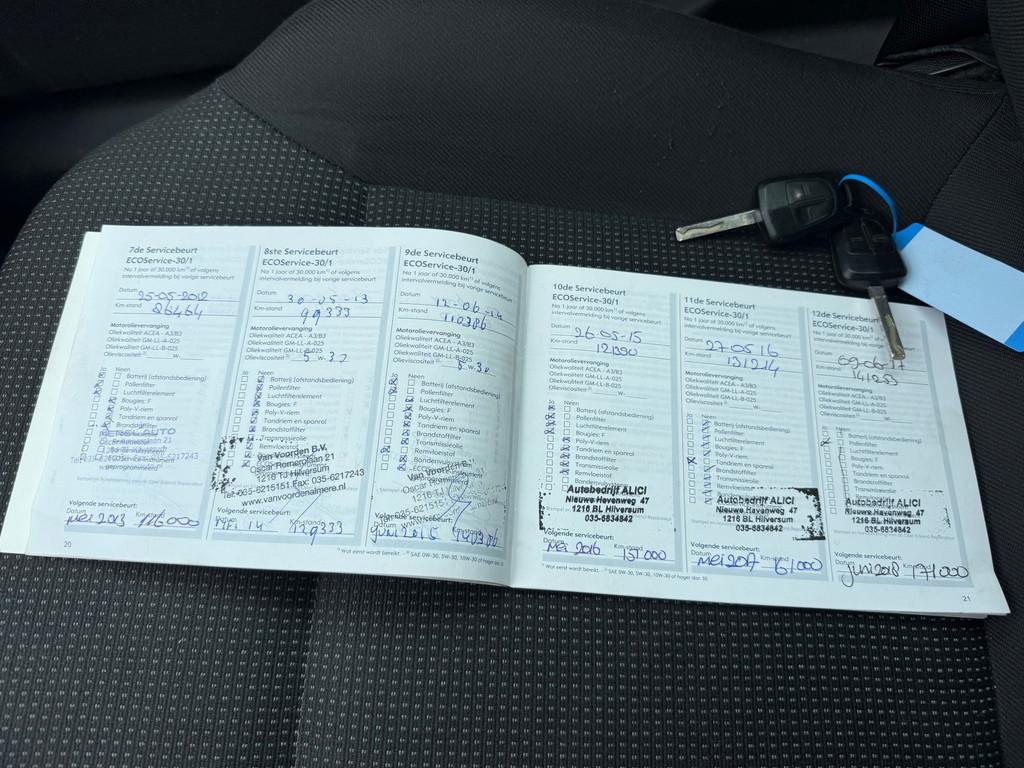 7de Servicebeurt
ECOService-30/1
No 1 jaar of 30.000 km¹⁾ of volgens
intervalvermelding bij vorige servicebeurt
Datum 25-05-2012
Km-stand 86464
Motorolievervanging
Oliekwaliteit ACEA - A3/B3
Oliekwaliteit GM-LL-A-025
Oliekwaliteit GM-LL-B-025
Olieviscositeit W-
Neen
Batterij (afstandsbediening)
Pollenfilter
Luchtfilterelement
Bougies: F
Poly-V-riem
Tandriem en spanrol
Brandstoffilter
Volgende servicebeurt:
Datum Km-stand
mei 2013 116000
20
8ste Servicebeurt
ECOService-30/1
No 1 jaar of 30.000 km¹⁾ of volgens
intervalvermelding bij vorige servicebeurt
Datum 30-05-13
Km-stand 99333
Motorolievervanging
Oliekwaliteit ACEA - A3/B3
Oliekwaliteit GM-LL-A-025
Oliekwaliteit GM-LL-B-025
Olieviscositeit 5 W- 30
Neen
Batterij (afstandsbediening)
Pollenfilter
Luchtfilterelement
Bougies: F
Poly-V-riem
Tandriem en spanrol
Brandstoffilter
Transmissieolie
Remvloeistof
Van Voorden B.V.
Oscar Romerolaan 21
1216 TJ Hilversum
Tel: 035-6215151 Fax: 035-6217243
www.vanvoordenalmere.nl
Volgende servicebeurt:
Km-stand
14 129333
9de Servicebeurt
ECOService-30/1
No 1 jaar of 30.000 km¹⁾ of volgens
intervalvermelding bij vorige servicebeurt
Datum 12-06-14
Km-stand 110386
Motorolievervanging
Oliekwaliteit ACEA - A3/B3
Oliekwaliteit GM-LL-A-025
Oliekwaliteit GM-LL-B-025
Olieviscositeit 5 W- 30
Neen
Batterij (afstandsbediening)
Pollenfilter
Luchtfilterelement
Bougies: F
Poly-V-riem
Tandriem en spanrol
Brandstoffilter
Transmissieolie
Remvloeistof
Bandenventiel
Van Voorden B.V.
Volgende servicebeurt:
juni 2015 140386
10de Servicebeurt
ECOService-30/1
No 1 jaar of 30.000 km¹⁾ of volgens
intervalvermelding bij vorige servicebeurt
Datum 26-05-15
Km-stand 121390
Motorolievervanging
Oliekwaliteit ACEA - A3/B3
Oliekwaliteit GM-LL-A-025
Oliekwaliteit GM-LL-B-025
Olieviscositeit W-
Neen
Batterij (afstandsbediening)
Pollenfilter
Luchtfilterelement
Bougies: F
Poly-V-riem
Tandriem en spanrol
Brandstoffilter
Transmissieolie
Remvloeistof
Autobedrijf ALICI
Nieuwe Havenweg 47
1216 BL Hilversum
035-6834842
Volgende servicebeurt:
Datum Km-stand
Mei 2016 151000
11de Servicebeurt
ECOService-30/1
No 1 jaar of 30.000 km¹⁾ of volgens
intervalvermelding bij vorige servicebeurt
Datum 27 05 16
Km-stand 131214
Motorolievervanging
Oliekwaliteit ACEA - A3/B3
Oliekwaliteit GM-LL-A-025
Oliekwaliteit GM-LL-B-025
Olieviscositeit W-
Neen
Batterij (afstandsbediening)
Pollenfilter
Luchtfilterelement
Bougies: F
Poly-V-riem
Tandriem en spanrol
Brandstoffilter
Transmissieolie
Autobedrijf ALICI
Nieuwe Havenweg 47
1216 BL Hilversum
035-6834842
Volgende servicebeurt:
Datum Km-stand
Mei 2017 161000
12de Servicebeurt
ECOService-30/1
No 1 jaar of 30.000 km¹⁾ of volgens
intervalvermelding bij vorige servicebeurt
Datum 09-06-17
Km-stand 141253
Motorolievervanging
Oliekwaliteit ACEA - A3/B3
Oliekwaliteit GM-LL-A-025
Oliekwaliteit GM-LL-B-025
Olieviscositeit W-
Neen
Batterij (afstandsbediening)
Pollenfilter
Luchtfilterelement
Bougies: F
Poly-V-riem
Tandriem en spanrol
Brandstoffilter
Transmissieolie
Autobedrijf ALICI
Nieuwe Havenweg 47
1216 BL Hilversum
035-6834842
Volgende servicebeurt:
Datum Km-stand
juni 2018 171000
21